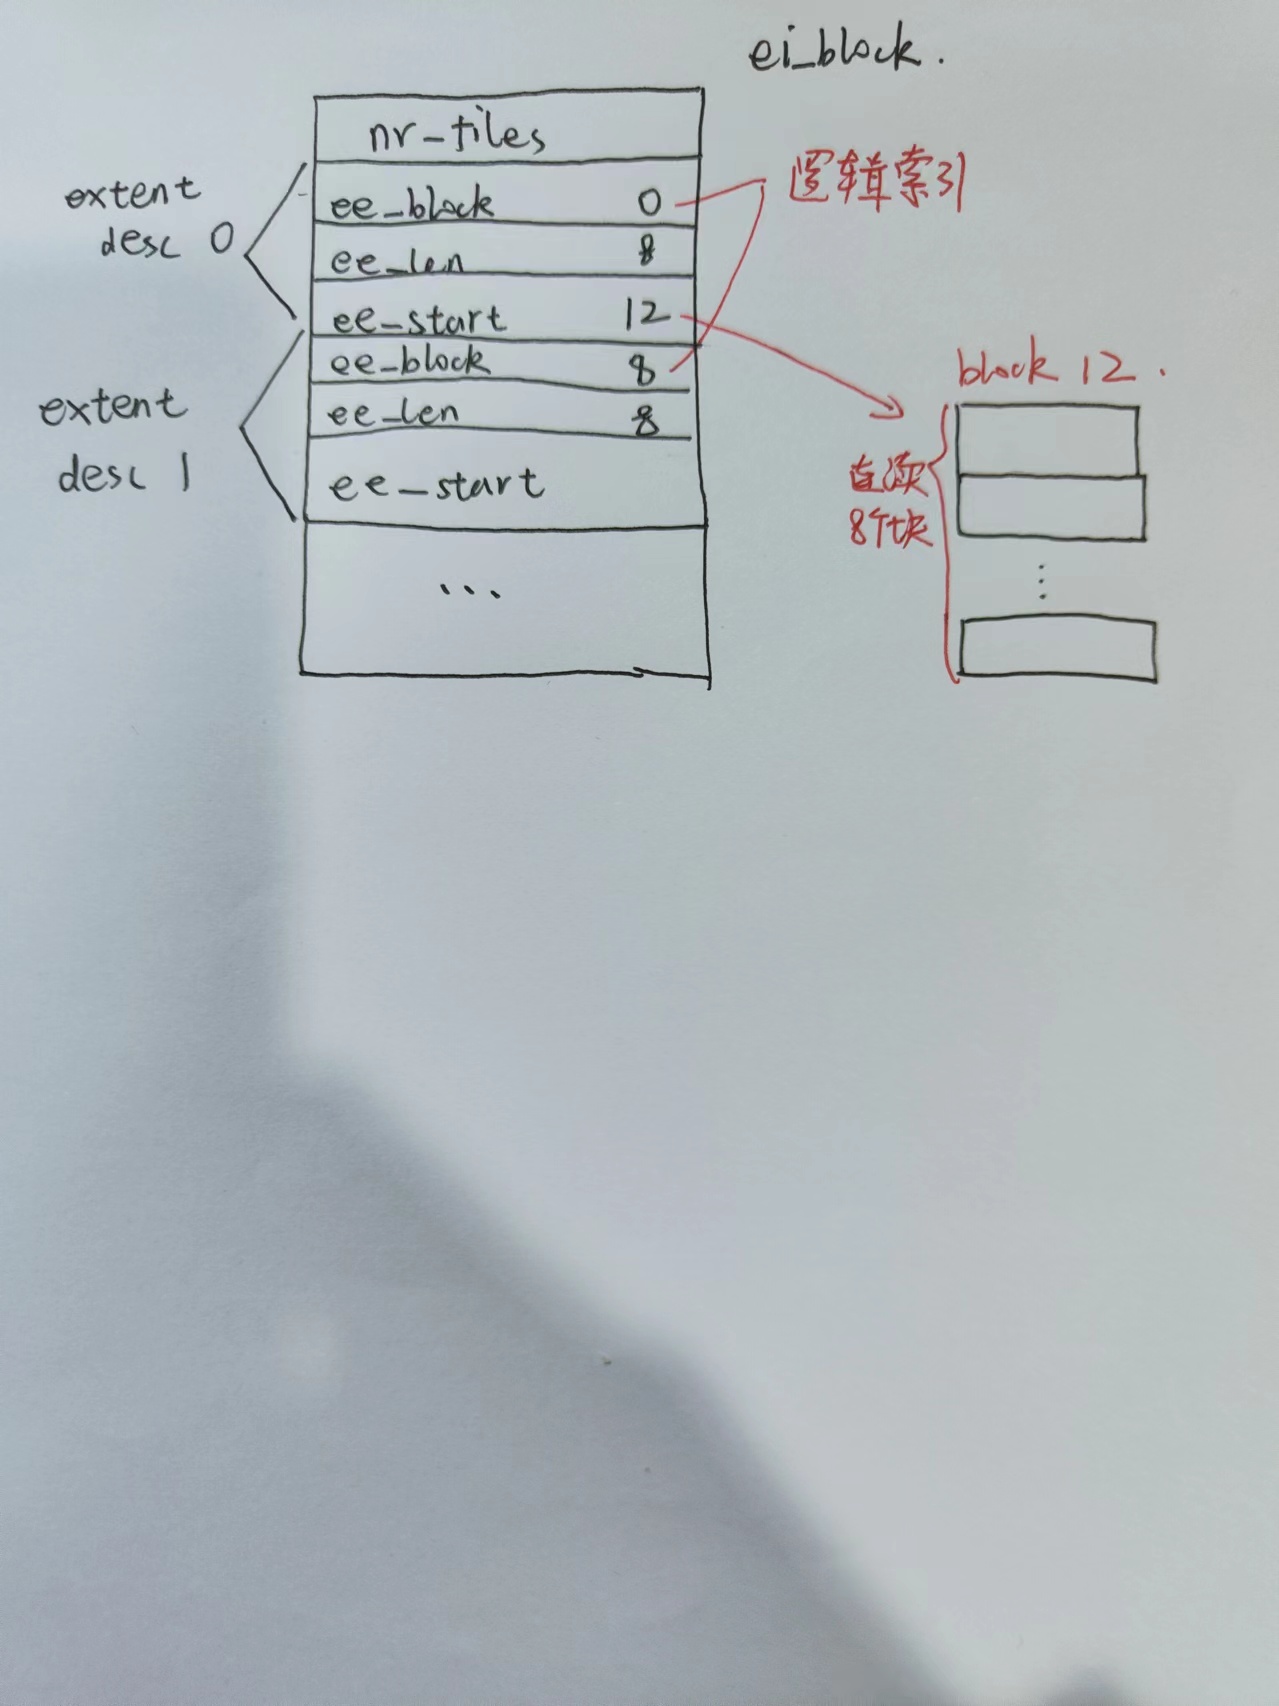 ei_block.
nr_files
extent
desc 0
ee_block 0
逻辑索引
ee_len 8
ee_start 12
extent
desc 1
ee_block 8
ee_len 8
ee_start
...
block 12.
连续
8个块
⋮